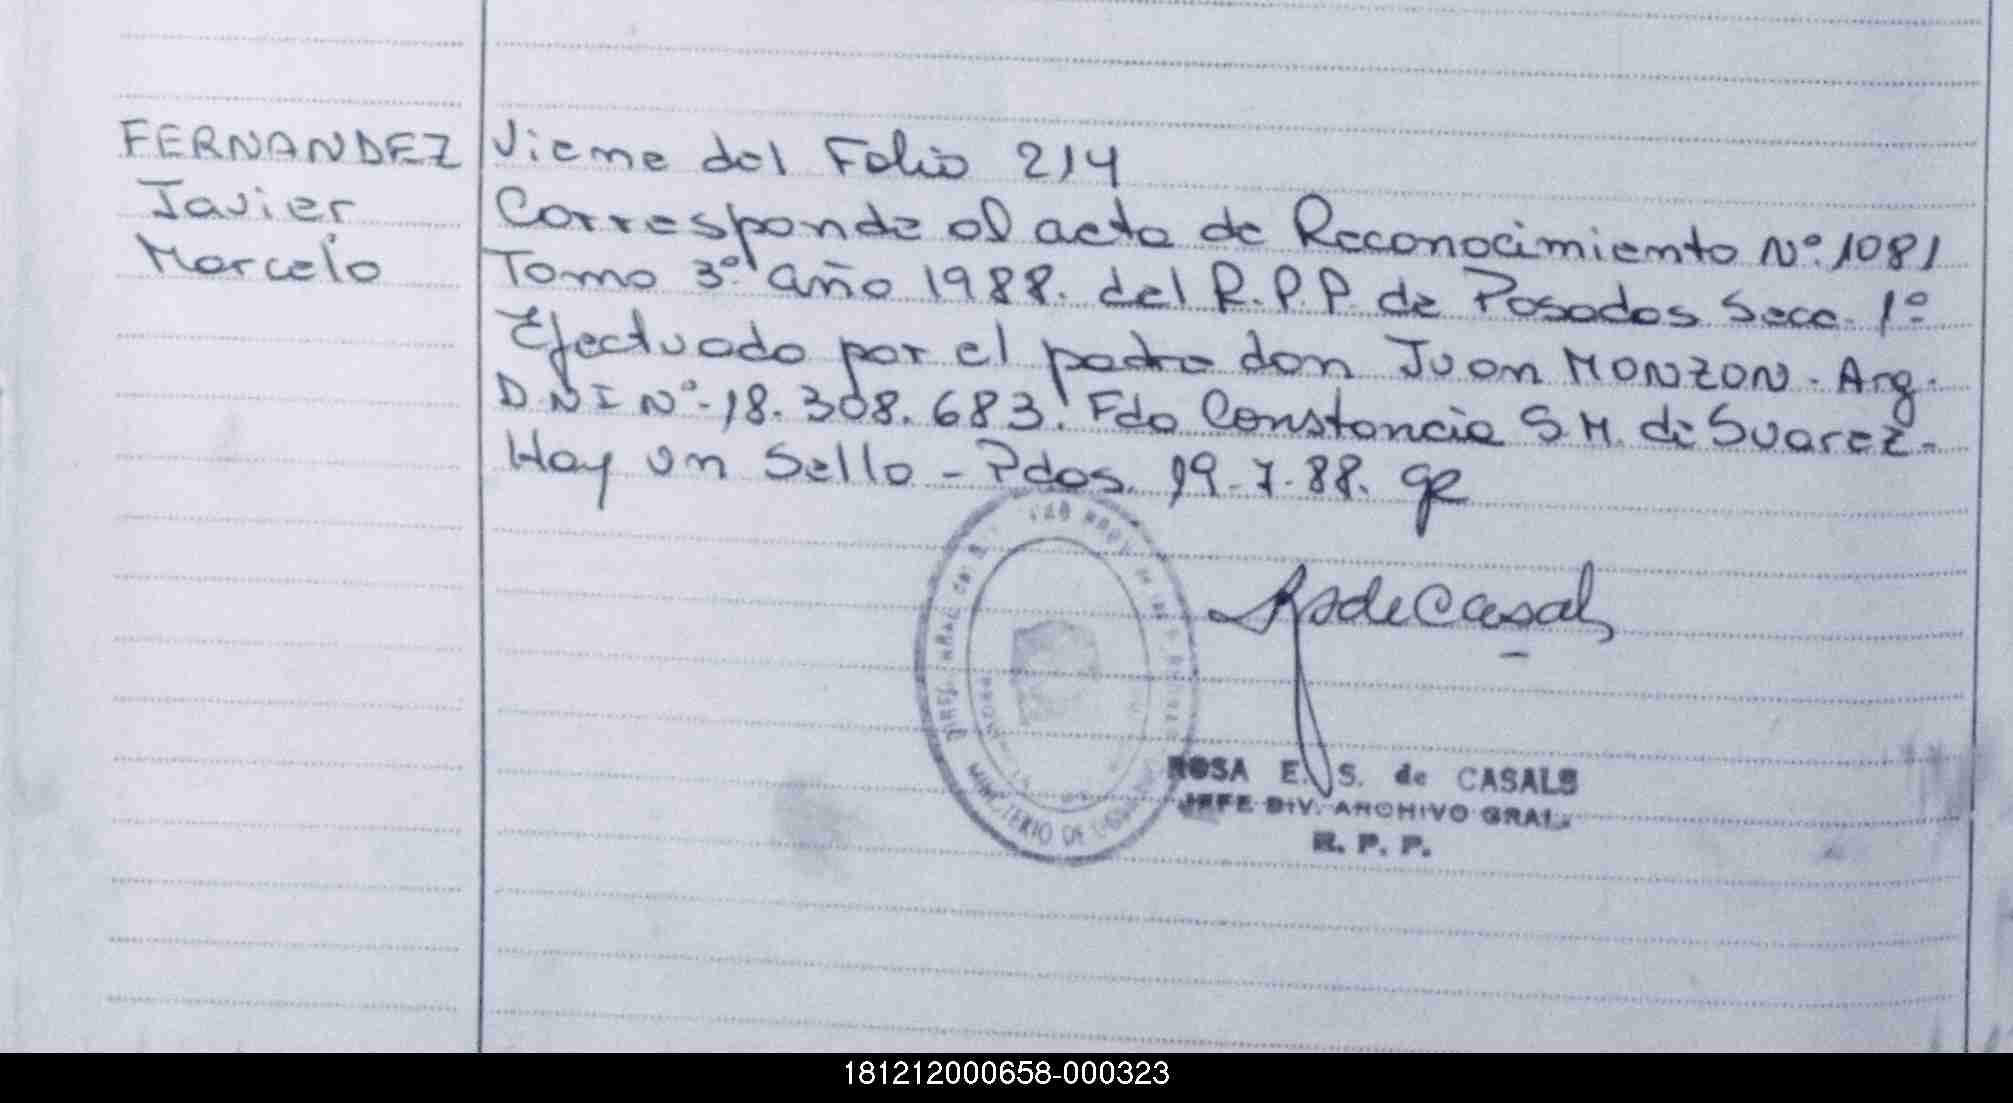 FERNANDEZ
Javier
Marcelo
Viene del Folio 214
Corresponde al acta de Reconocimiento Nº 1081
Tomo 3º año 1988. del R.P.P. de Posadas Secc. 1º
Efectuado por el padre don Juan MONZON. Arg.
DNI Nº 18.308.683. Fdo Constancia S M. de Suarez.
Hay un Sello - Pdas. 19-7-88. ge
MINISTERIO DE
ROSA E. S. de CASALS
JEFE DIV. ARCHIVO GRAL.
R. P. P.
181212000658-000323